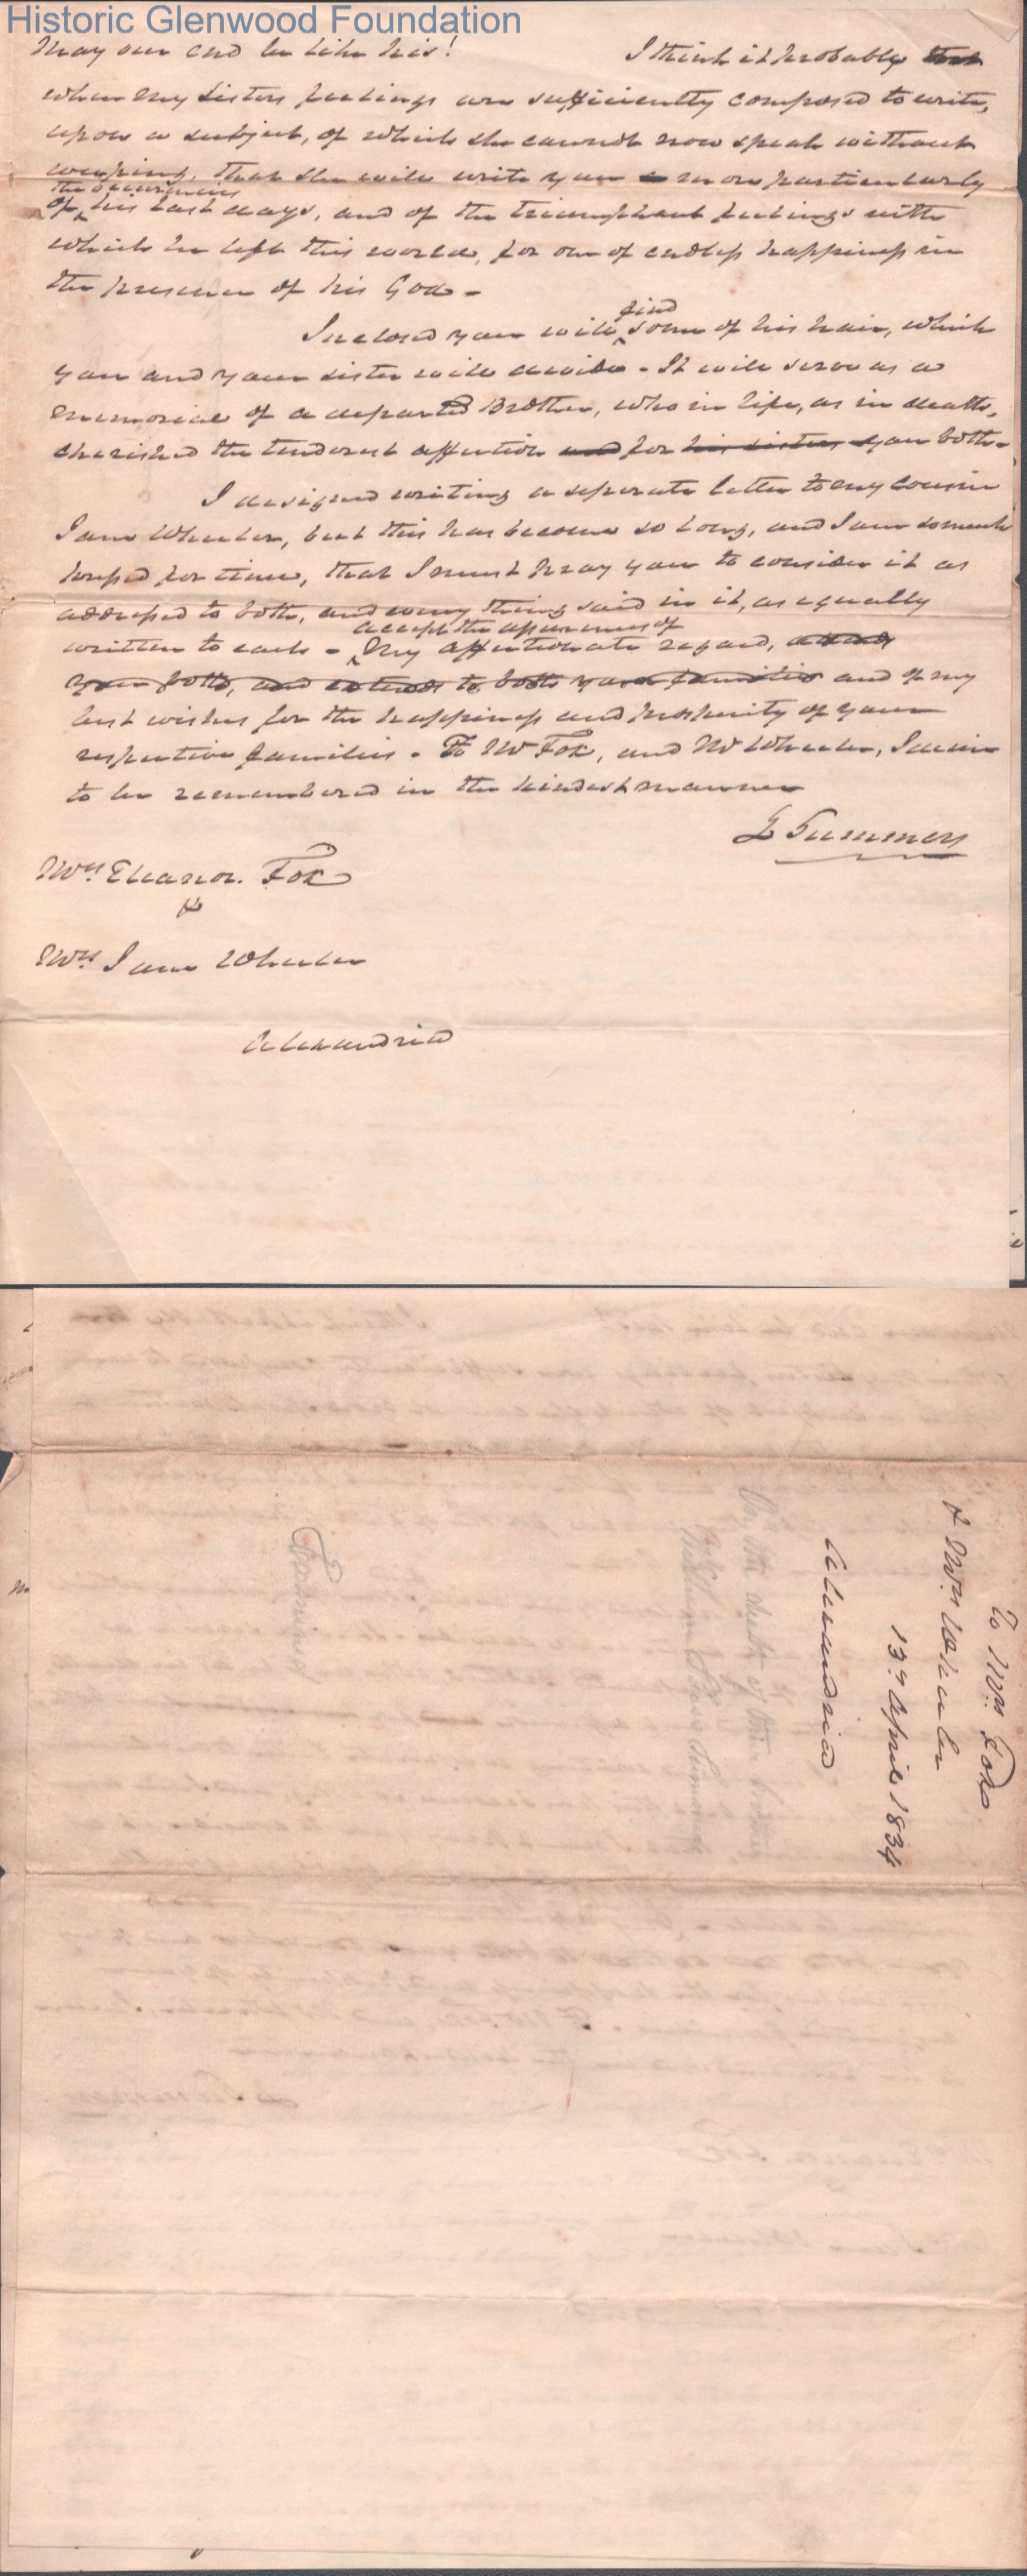 Historic Glenwood Foundation
May our end be like his! I think it probably that
when my sisters feelings are sufficiently composed to write,
upon a subject, of which she cannot now speak without
weeping, that she will write you more particularly
the occurrences
of his last days, and of the triumphant feelings with
which he left this world, for one of endless happiness in
the presence of his God -
find
Inclosed you will some of his hair, which
you and your sister will divide - It will serve as a
memorial of a departed Brother, who in life, as in death,
cherished the tenderest affection and for his sisters you both -
I designed writing a seperate letter to my cousin
Jane Wheeler, but this has become so long, and I am so much
pressed for time, that I must pray you to consider it as
addressed to both, and every thing said in it, as equally
accept the assurances of
written to each - My affectionate regard,
your both, and extends to both your families and of my
best wishes for the happiness and prosperity of your
respective families - To Mr Fox, and Mr Wheeler, I desire
to be remembered in the kindest manner
L Summers
Mrs Eleanor Fox
&
Mrs Jane Wheeler
Alexandria
To Mrs Fox
& Mrs Wheeler
13th April 1834
Alexandria
On the death of their brother
William Summers